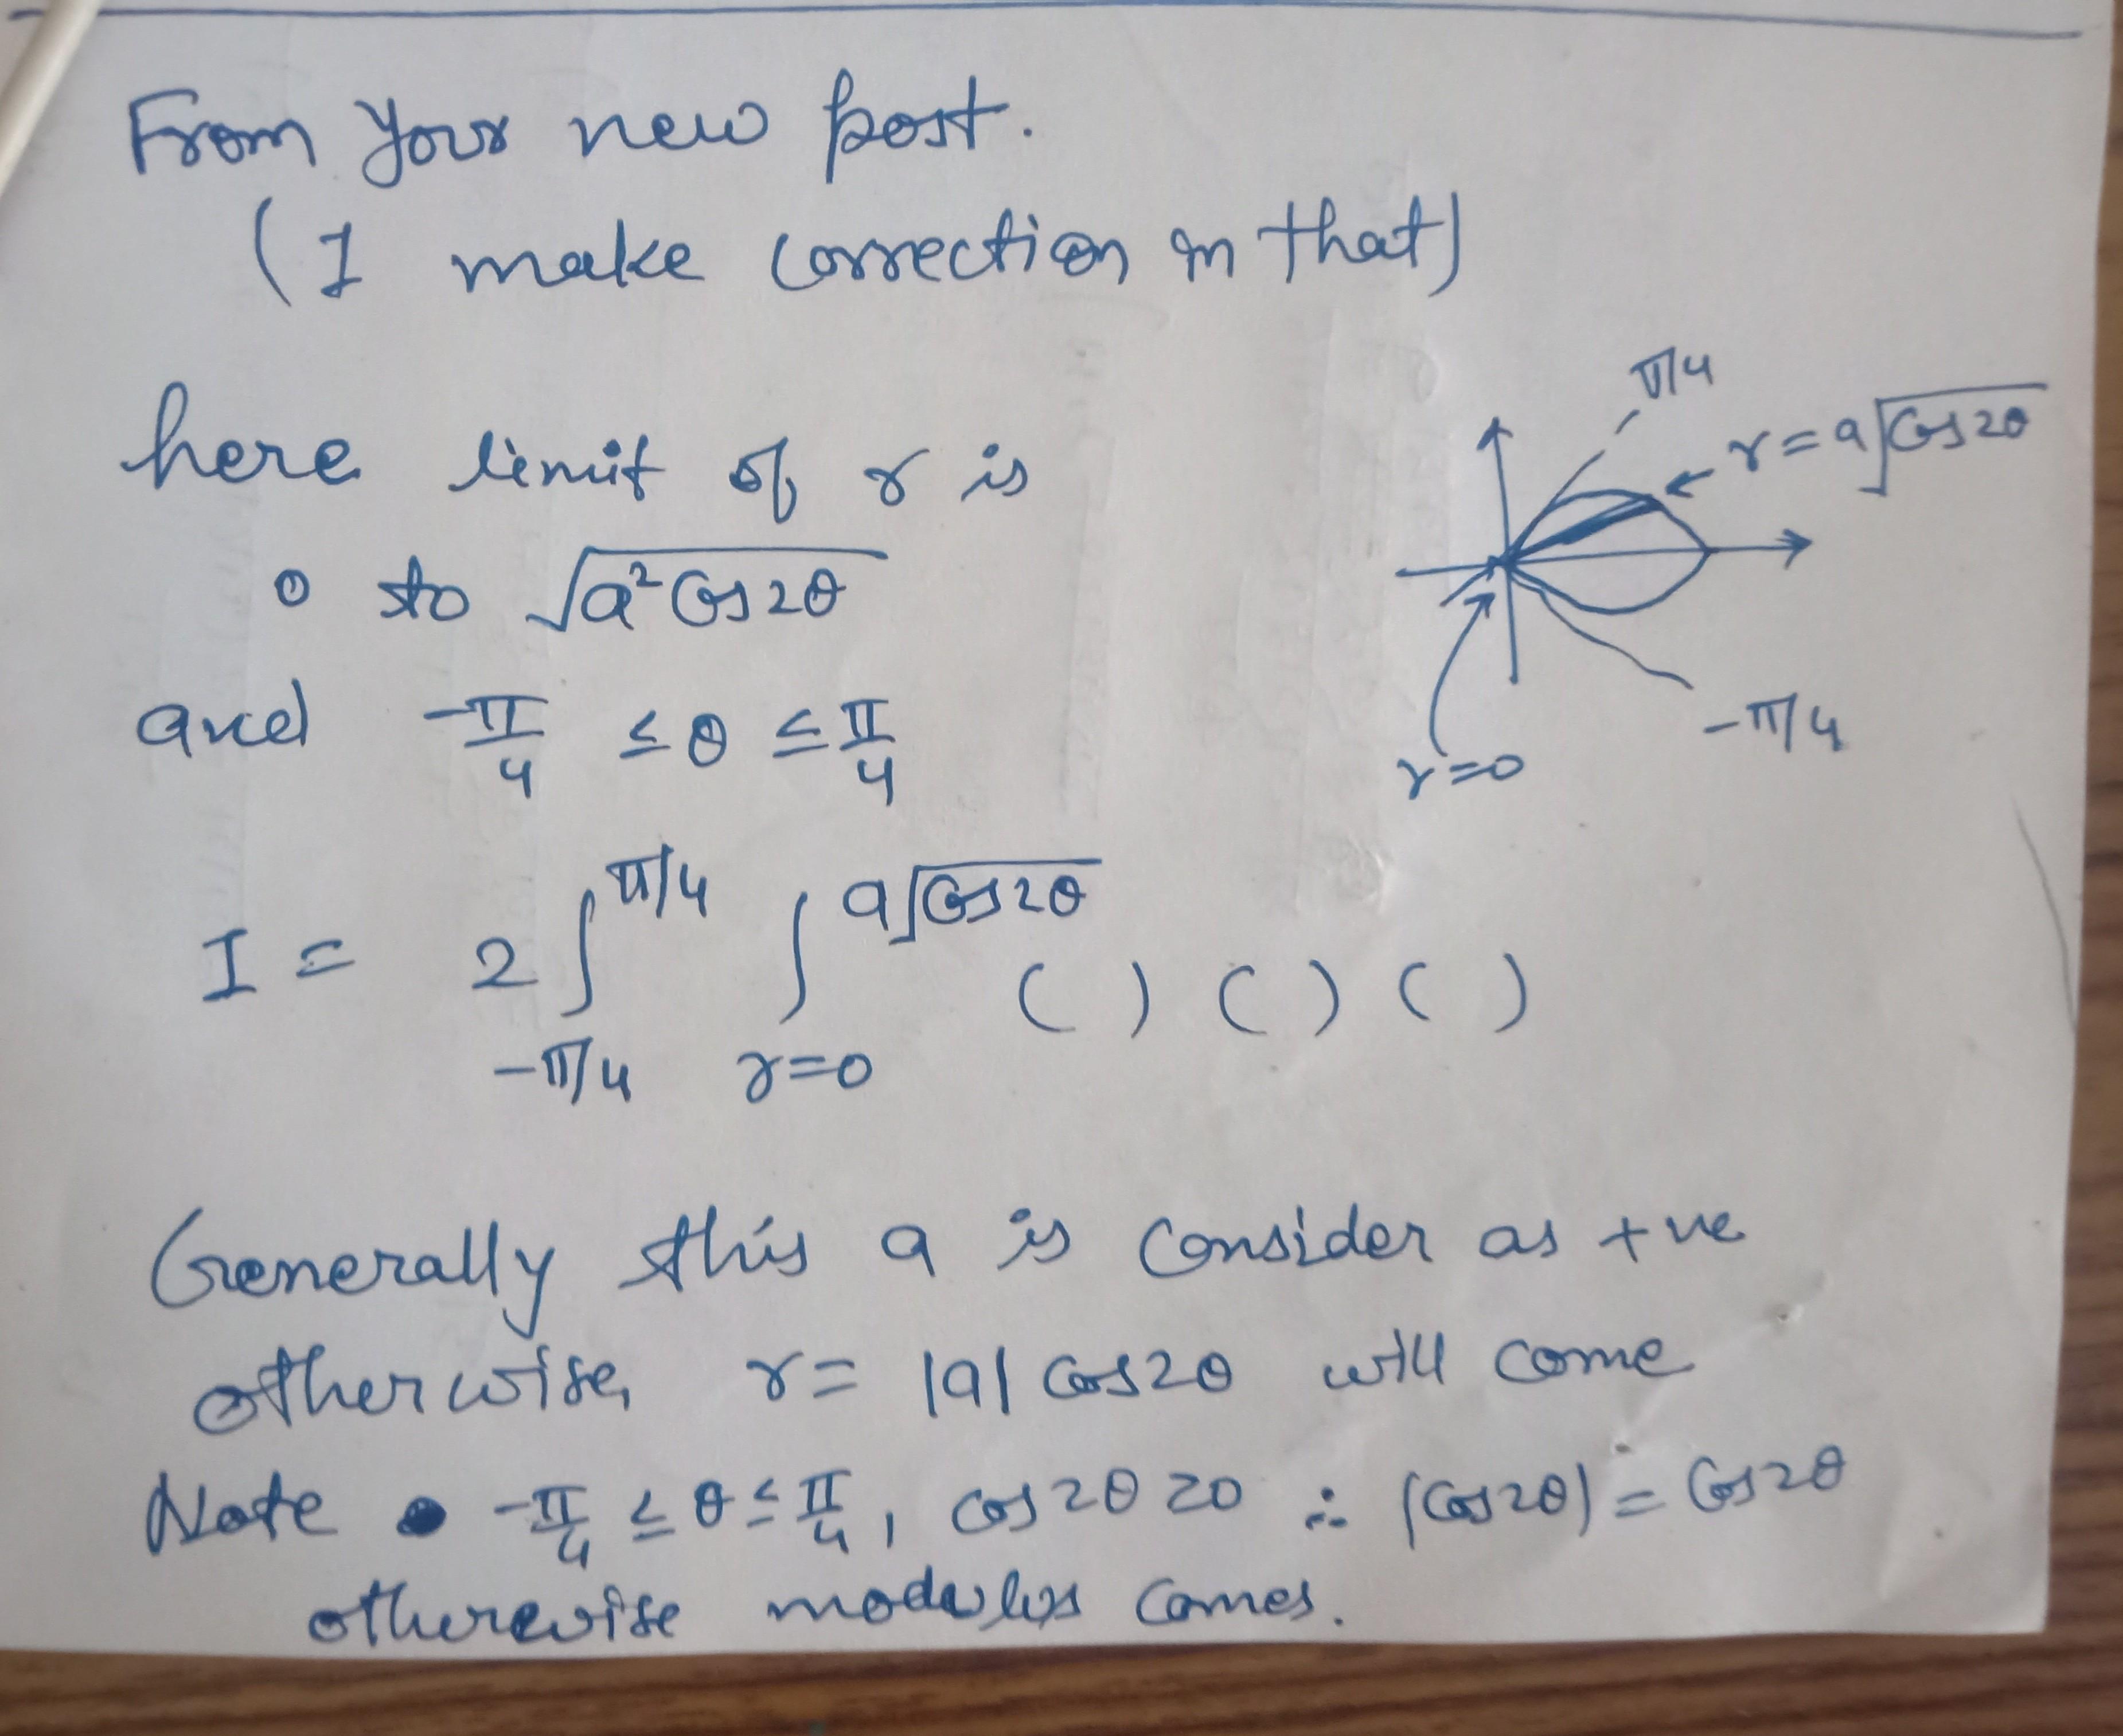 From your new post.
(I make correction in that)
here limit of r is
0 to √(a² cos 2θ)
and -π/4 ≤ θ ≤ π/4
π/4
r = a√(cos 2θ)
-π/4
r=0
I = 2 ∫_{-π/4}^{π/4} ∫_{r=0}^{a√(cos 2θ)} ( ) ( ) ( )
Generally this a is consider as +ve
otherwise, r = |a| cos 2θ will come
Note • -π/4 ≤ θ ≤ π/4, cos 2θ ≥ 0 ∴ |cos 2θ| = cos 2θ
otherewise modulus comes.